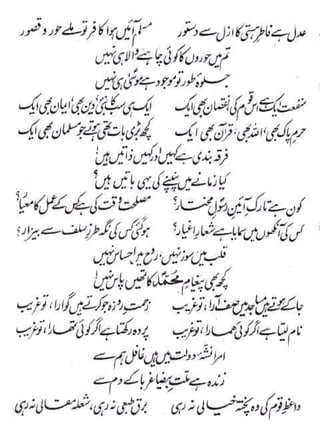 عدل ہے فاطرِ ہستی کا ازل سے دستور مسلم آئیں ہوا کافر تو ملے حور و قصور
تم میں حوروں کا کوئی چاہنے والا ہی نہیں
جلوۂ طور تو موجود ہے موسیٰ ہی نہیں
منفعت ایک ہے اس قوم کی، نقصان بھی ایک ایک ہی سب کا نبیؐ، دین بھی، ایمان بھی ایک
حرمِ پاک بھی، اللہ بھی، قرآن بھی ایک کچھ بڑی بات تھی ہوتے جو مسلمان بھی ایک
فرقہ بندی ہے کہیں اور کہیں ذاتیں ہیں!
کیا زمانے میں پنپنے کی یہی باتیں ہیں؟
کون ہے تارکِ آئینِ رسولِؐ مختار؟ مصلحت وقت کی ہے کس کے عمل کا معیار؟
کس کی آنکھوں میں سمایا ہے شعارِ اغیار؟ ہوگئی کس کی نگہ طرزِ سلف سے بیزار؟
قلب میں سوز نہیں، روح میں احساس نہیں
کچھ بھی پیغامِ محمدؐ کا تمھیں پاس نہیں
جا کے ہوتے ہیں مساجد میں صف آرا، تو غریب زحمتِ روزہ جو کرتے ہیں گوارا، تو غریب
نام لیتا ہے اگر کوئی ہمارا، تو غریب پردہ رکھتا ہے اگر کوئی تمھارا، تو غریب
امرا نشّۂ دولت میں ہیں غافل ہم سے
زندہ ہے ملّتِ بیضا غربا کے دم سے
واعظِ قوم کی وہ پختہ خیالی نہ رہی برقِ طبعی نہ رہی، شعلہ مقالی نہ رہی